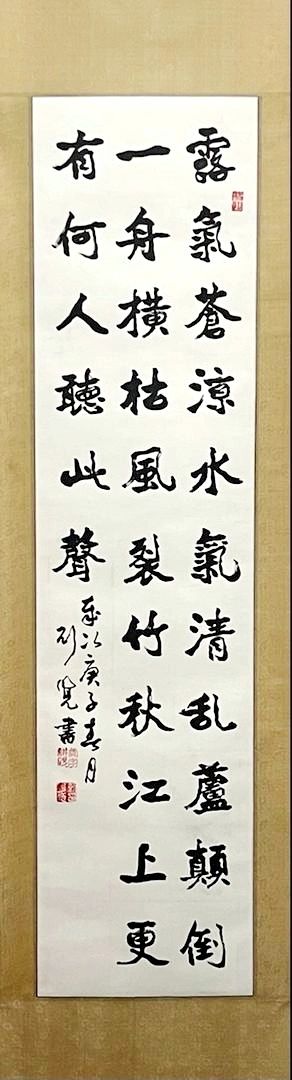 露氣蒼涼水氣清乱蘆顛倒
一舟横枯風裂竹秋江上更
有何人聽此聲
歲次庚子春月